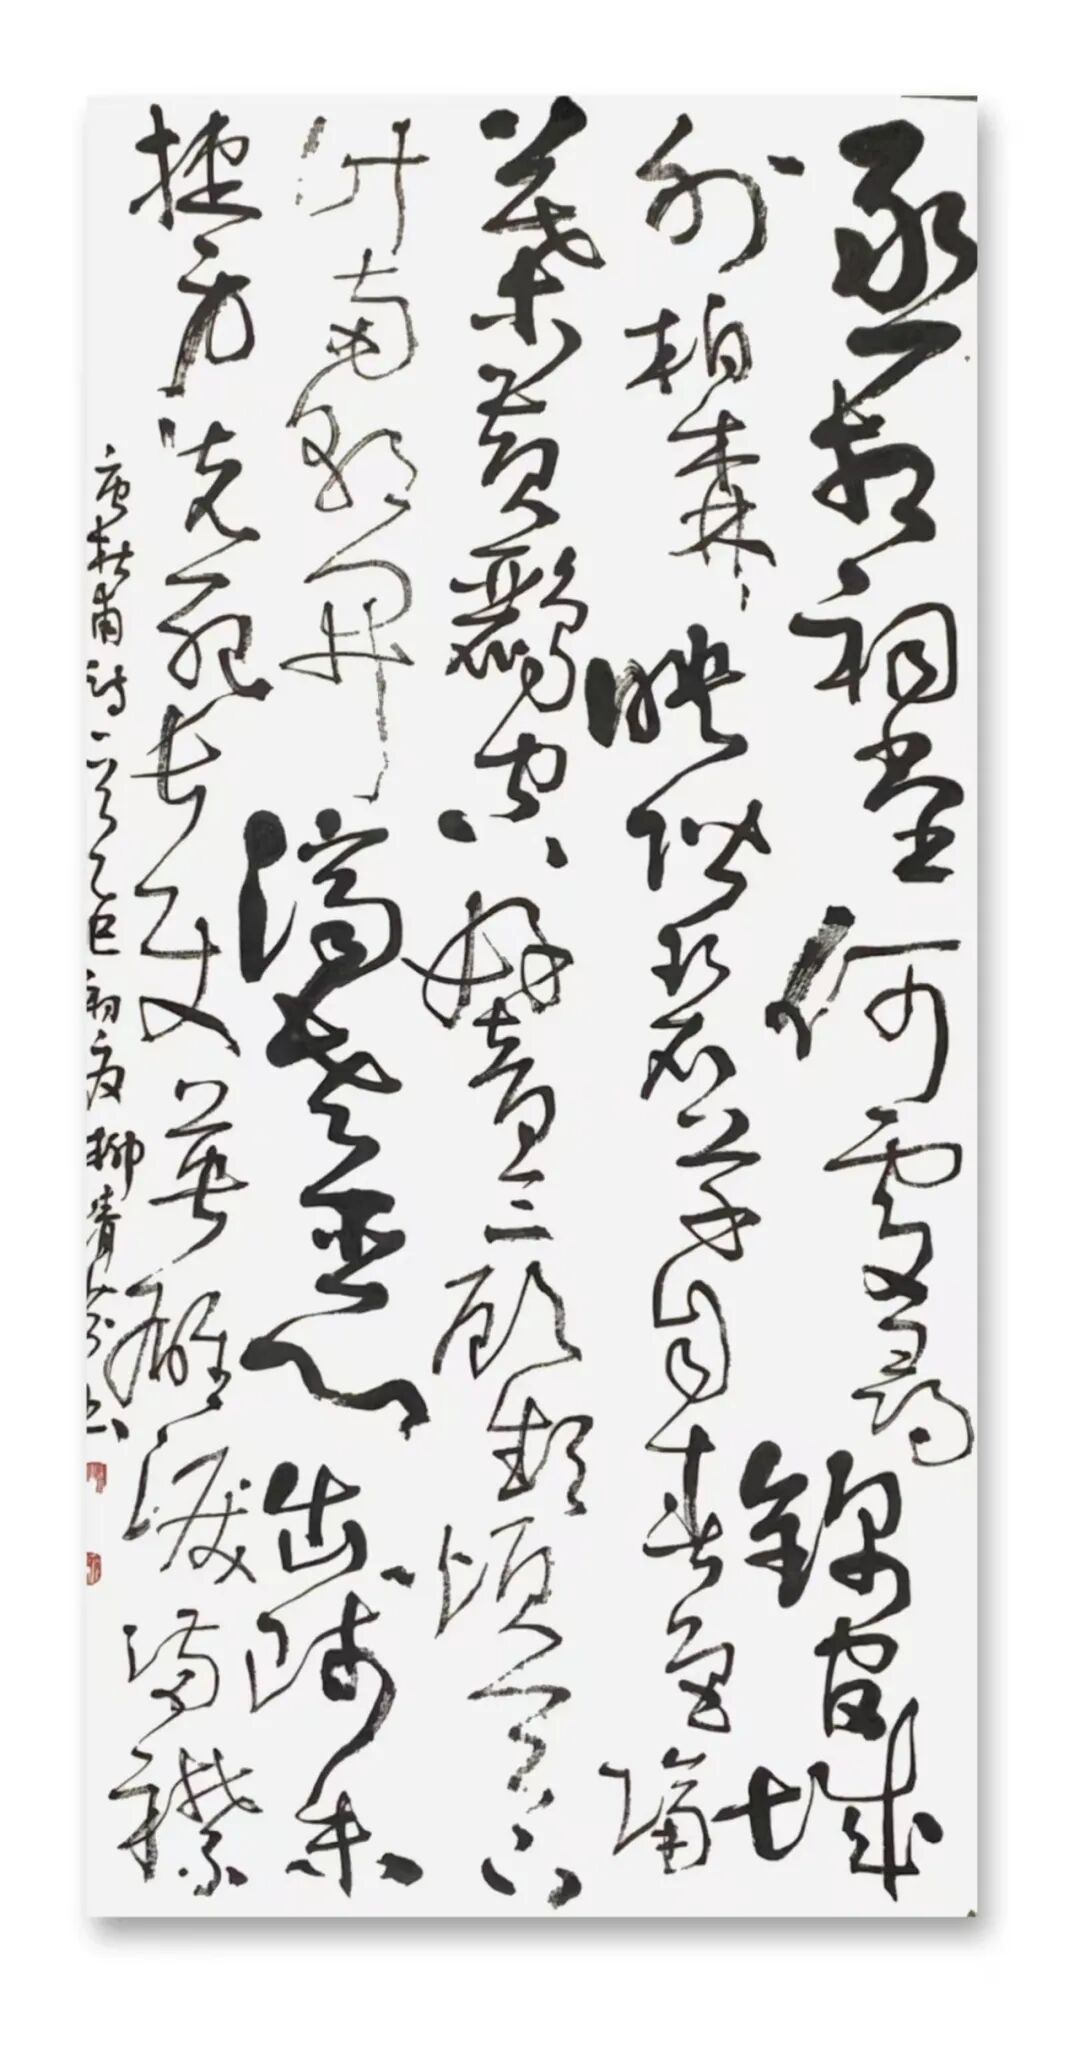 丞相祠堂何處尋錦官城
外柏森森映階碧草自春色隔
葉黃鸝空好音三顧頻煩天下
計兩朝開濟老臣心出師未
捷身先死長使英雄淚滿襟
唐杜甫詩一首乙巳初夏柳青芬書